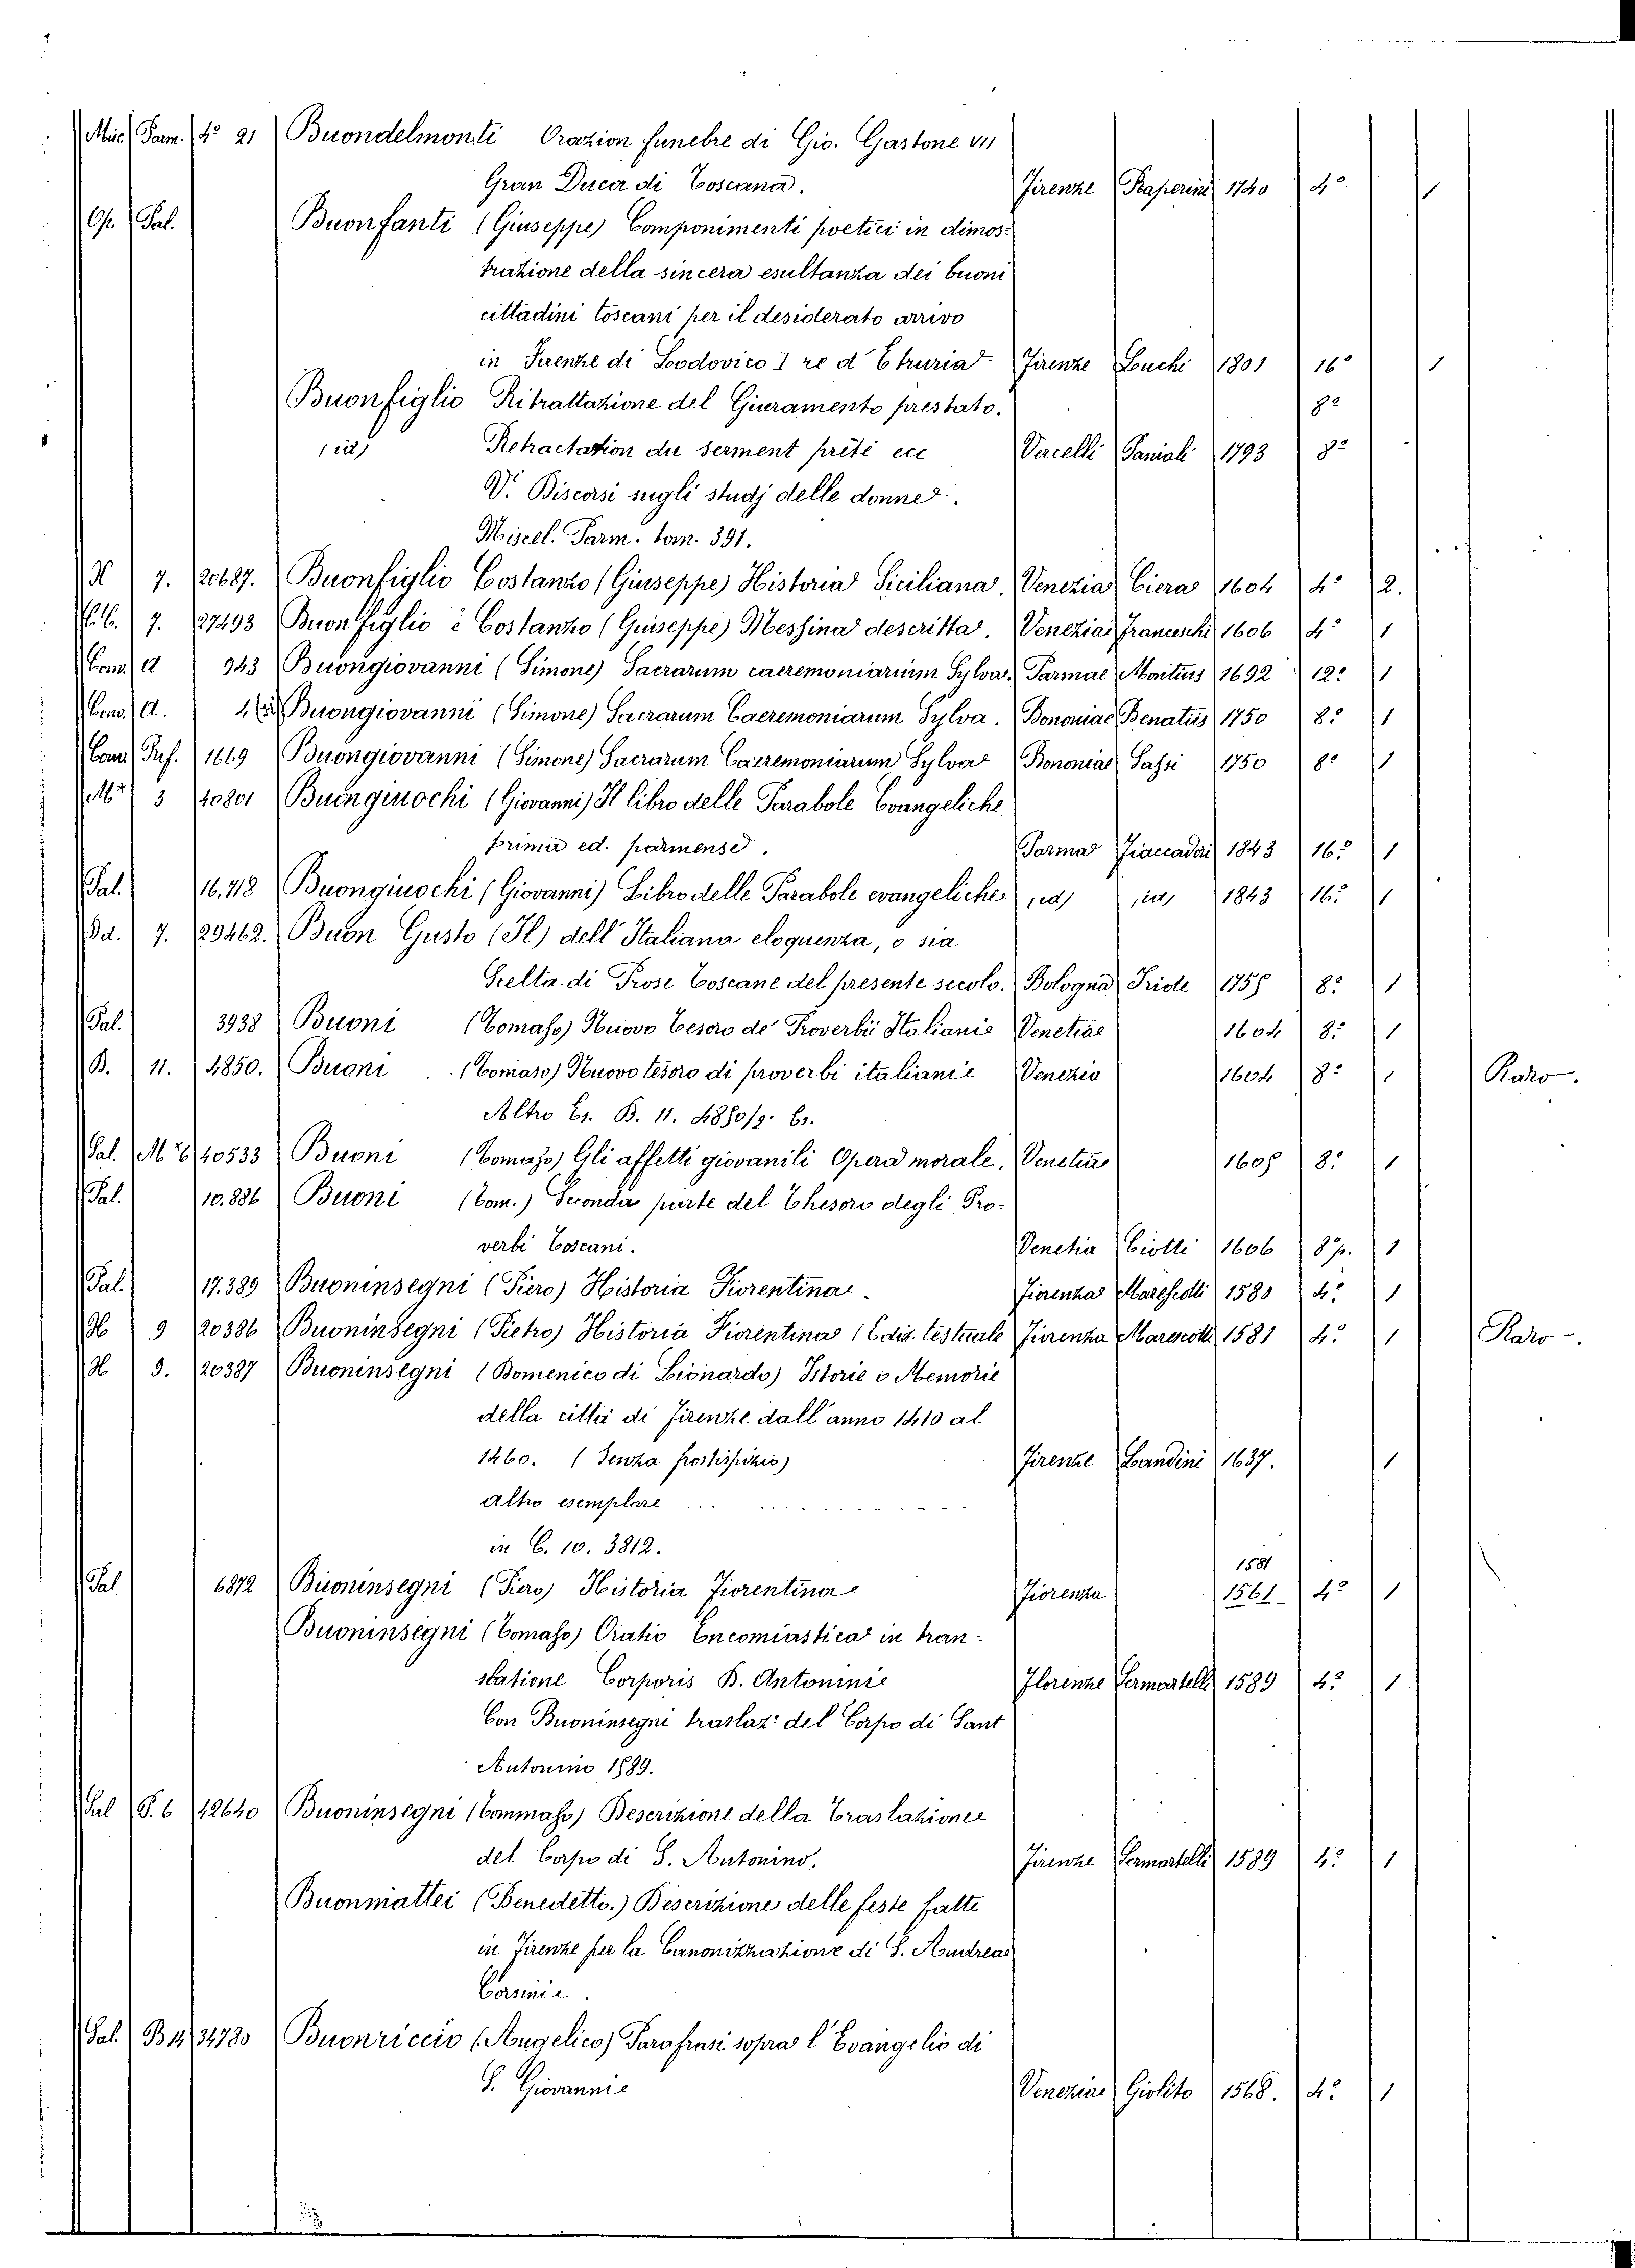 Misc. Parm. 4º 21 Buondelmonti Orazion funebre di Gio. Gastone VII
Gran Duca di Toscana. Firenze Paperini 1740 4º 1
Op. Pal. Buonfanti (Giuseppe) Componimenti poetici in dimos-
trazione della sincera esultanza dei buoni
cittadini toscani per il desiderato arrivo
in Firenze di Lodovico I re d'Etruria Firenze Luchi 1801 16º 1
Buonfiglio Ritrattazione del Giuramento prestato. 8º
(id) Retractation du serment prêté ecc Vercelli Paniali 1793 8º
V. Discorsi sugli studj delle donne.
Miscel. Parm. tom. 391.
H 7. 20687. Buonfiglio Costanzo (Giuseppe) Historia Siciliana. Venezia Ciera 1604 4º 2.
7. 27493 Buonfiglio e Costanzo (Giuseppe) Messina descritta. Venezia Franceschi 1606 4º 1
Conv. A 943 Buongiovanni (Simone) Sacrarum caeremoniarum Sylva. Parmae Montius 1692 12º 1
Conv. A. Buongiovanni (Simone) Sacrarum Caeremoniarum Sylva. Bononiae Benatiis 1750 8º 1
Conv. Rif. 1669 Buongiovanni (Simone) Sacrarum Caeremoniarum Sylva Bononiae Sassi 1750 8º 1
3 40801 Buongiuochi (Giovanni) Il libro delle Parabole Evangeliche
prima ed. parmense. Parma Fiaccadori 1843 16º 1
Pal. 16.718 Buongiuochi (Giovanni) Libro delle Parabole evangeliche (id) (id) 1843 16º 1
7. 29462. Buon Gusto (Il) dell'Italiana eloquenza, o sia
Scelta di Prose Toscane del presente secolo. Bologna 8º 1
Pal. 3938 Buoni (Tomaso) Nuovo Tesoro de' Proverbii Italiani Venetia 1604 8º 1
B. 11. 4850. Buoni (Tomaso) Nuovo tesoro di proverbi italiani Venezia 1604 8º 1 Raro.
Altro Es. B. 11.
Pal. 40533 Buoni (Tomaso) Gli affetti giovanili Opera morale. Venetia 1605 8º 1
Pal. 10.886 Buoni (Tom.) Seconda parte del Thesoro degli Pro-
verbi Toscani. Venetia Ciotti 1606 8º p. 1
Pal. 17.389 Buoninsegni (Piero) Historia Fiorentina. Fiorenza Marescotti 1580 4º 1
H 9 20386 Buoninsegni (Pietro) Historia Fiorentina (Ediz. testuale Fiorenza Marescotti 1581 4º 1 Raro.
H 9. 20387 Buoninsegni (Domenico di Lionardo) Istorie o Memorie
della città di Firenze dall'anno 1410 al
1460. (Senza frontispizio) Firenze Landini 1637. 1
altro esemplare
in C. 10. 3812.
Pal 6872 Buoninsegni (Piero) Historia Fiorentina Fiorenza 1581 1561 4º 1
Buoninsegni (Tomaso) Oratio Encomiastica in tran-
slatione Corporis B. Antonini Florenze Sermartelli 1589 4º 1.
Con Buoninsegni traslaz: del Corpo di Sant
Antonino 1589.
Pal S. 6 42640 Buoninsegni (Tommaso) Descrizione della Traslazione
del Corpo di S. Antonino. Firenze Sermartelli 1589 4º 1
Buonmattei (Benedetto.) Descrizione delle feste fatte
in Firenze per la Canonizzazione di S. Andrea
Corsini.
Pal. B 14 34730 Buonriccio (Angelico) Parafrasi sopra l'Evangelio di
S. Giovanni Venezia Giolito 1568. 4º 1